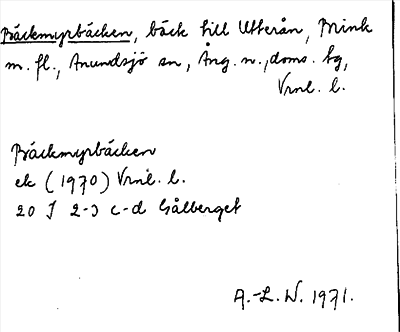 Bäckmyrbäcken, bäck till Utterån, Brink
m. fl., Anundsjö sn, Ång. n., doms. hg,
Vrnl. l.
Bäckmyrbäcken
ek (1970) Vrnl. l.
20 J 2-3 c-d Gålberget
A.-L. W. 1971.